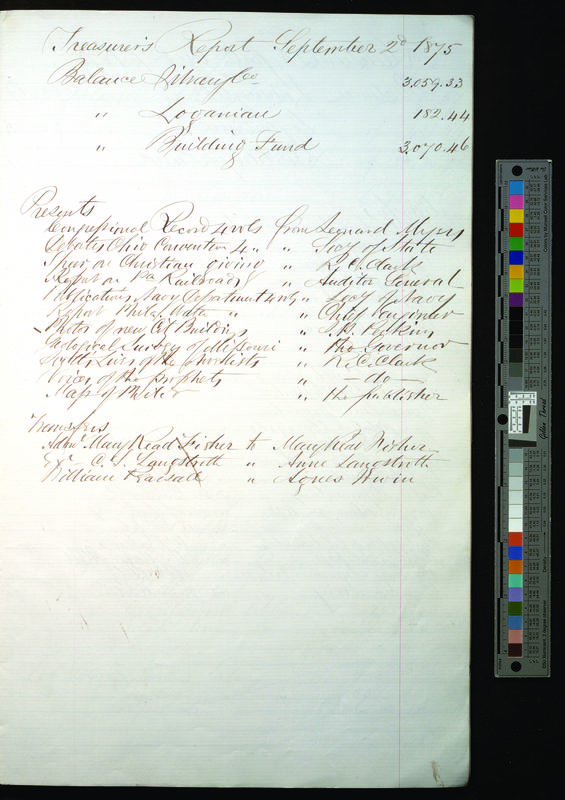 Treasurer's Report September 2d 1875
Balance Library Co 3.059.33
" Loganian 182.44
" Building Fund 3.070.46
Presents
Congressional Record 4 vols from Leonard Myers
Debates Ohio Convention 4 " " Secy of State
on Christian giving " R. C. Clark
Report on Pa Railroads " Auditor General
Publications Navy Department 4 vols " Secy of Navy
Report Phila. Water " " Chief Engineer
Photos of new City Building " S. Perkins
Geological Survey of Missouri " the Governor
Lives of the " R. C. Clark
Voices of the prophets " - do -
Map of " the publisher
Transfers
Adm. Mary Read Fisher to Mary Read Fisher
Exr C. S. Langstroth " Anne Langstroth
William " Agnes Irwin